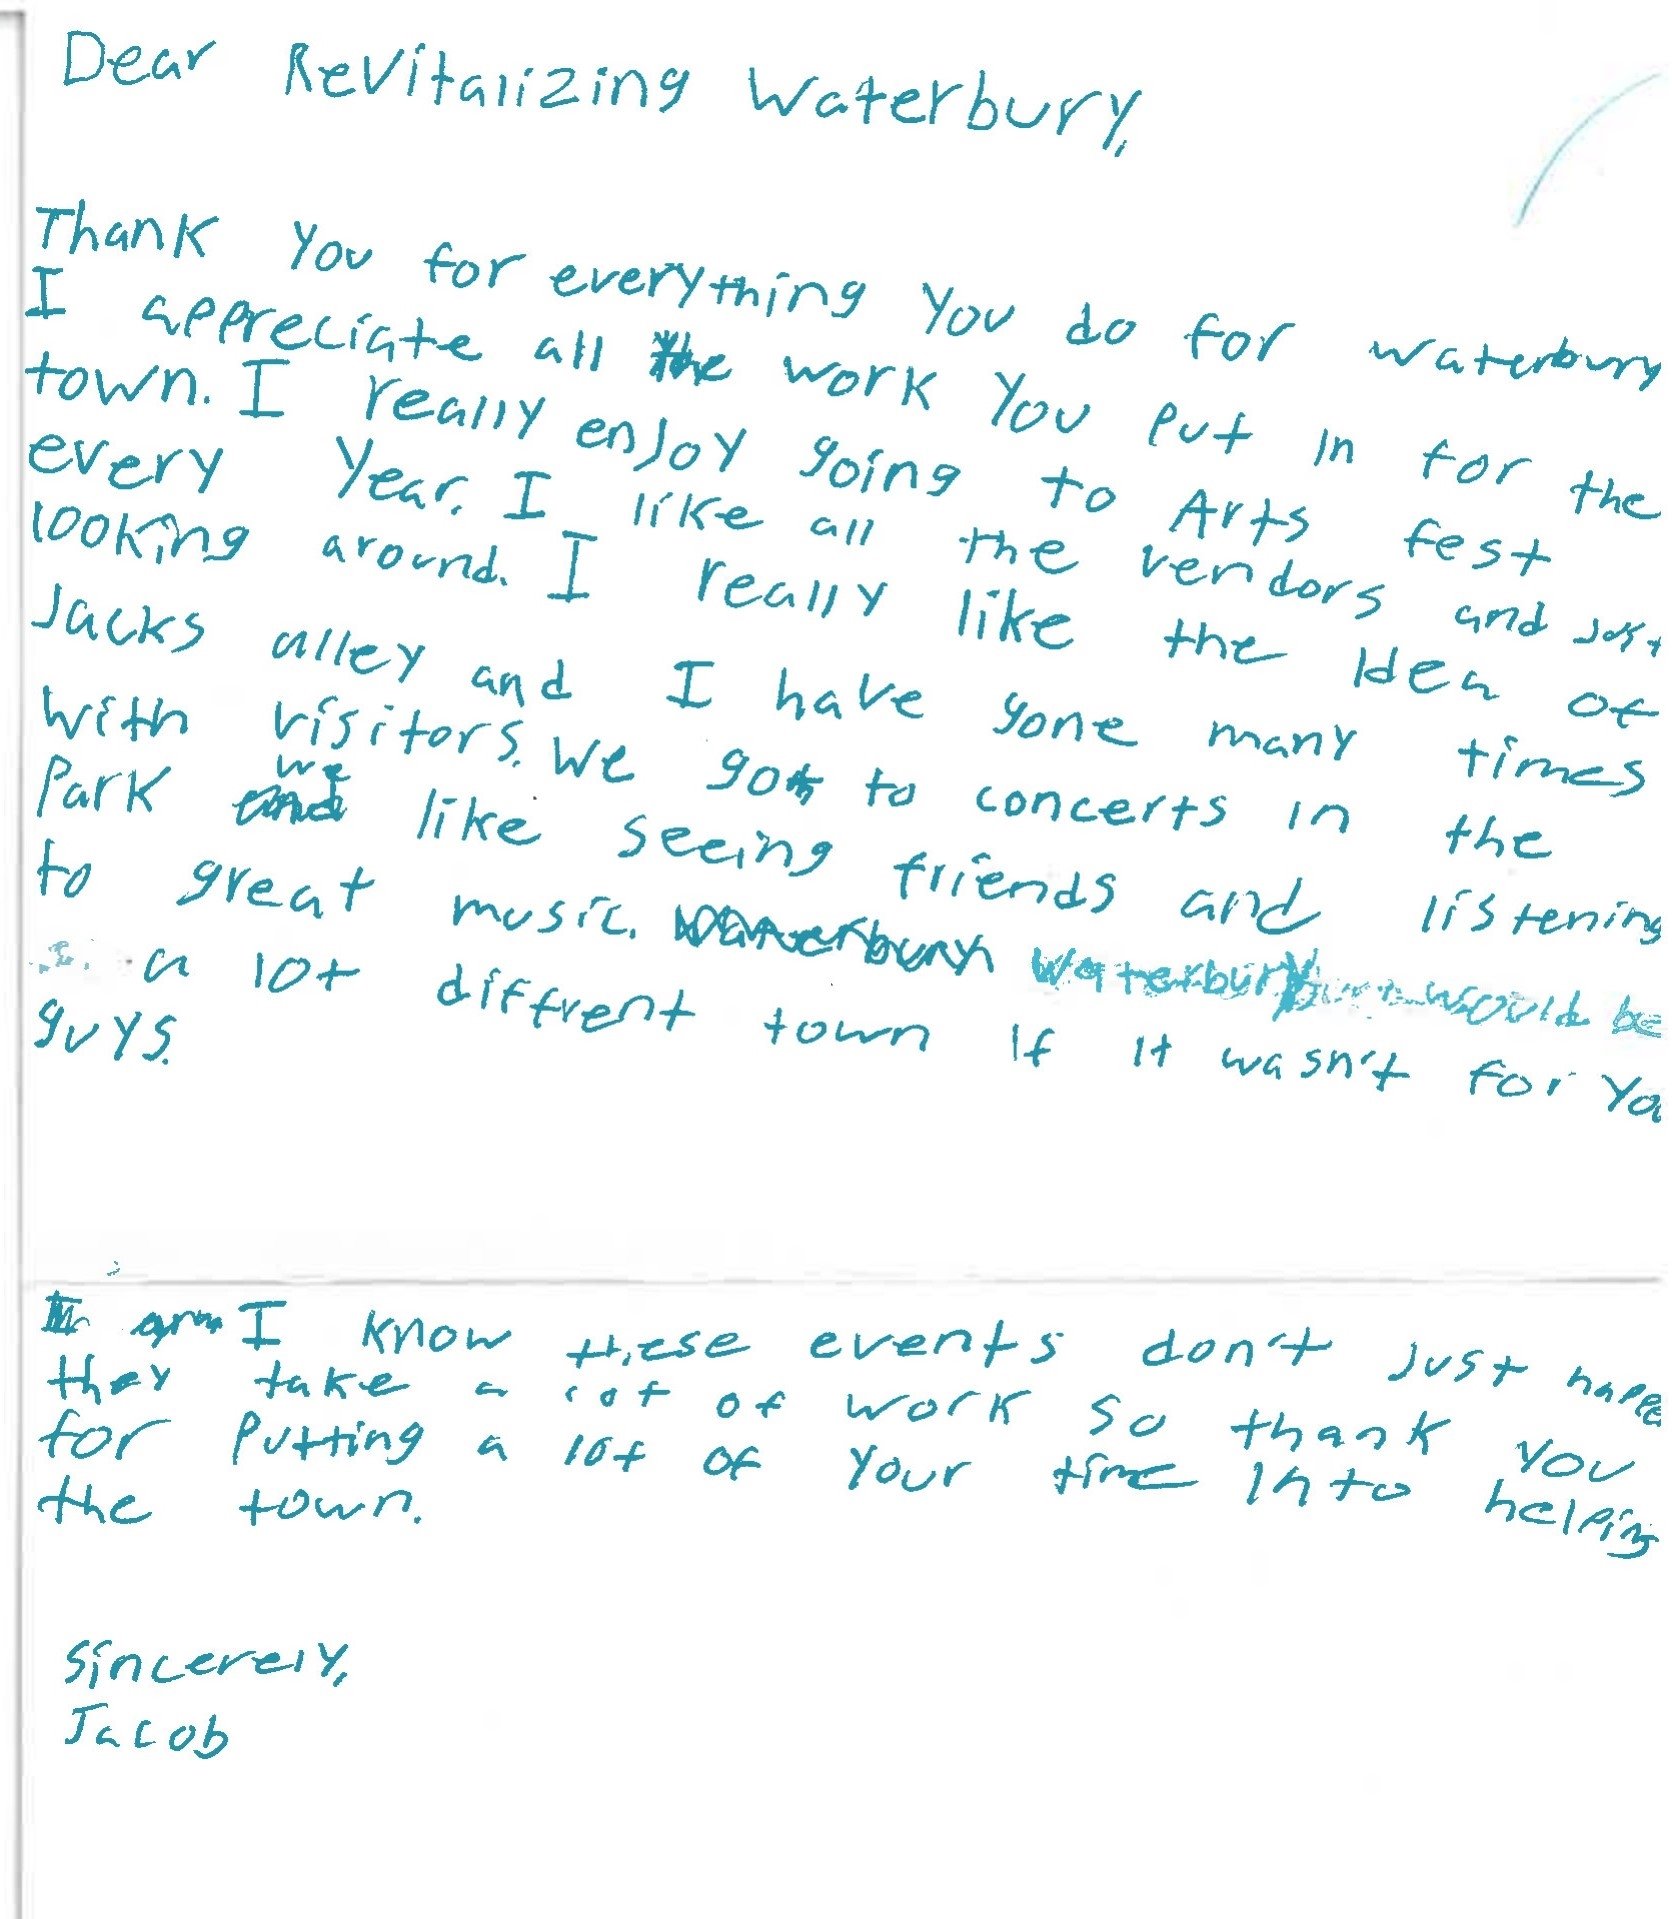 Dear Revitalizing Waterbury,
Thank you for everything you do for waterbury
I appreciate all the work you put in for the
town. I really enjoy going to Arts fest
every year. I like all the vendors and just
looking around. I really like the Idea of
Jacks alley and I have gone many times
with visitors. We go to concerts in the
Park we like seeing friends and listening
to great music. Waterbury would be
a lot diffrent town if it wasn't for you
guys.
I know these events don't just happe
they take a lot of work so thank you
for putting a lot of your time Into helping
the town.
Sincerely,
Jacob